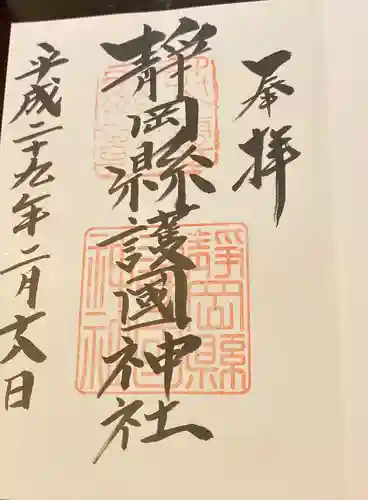 奉拝
靜岡縣護國神社
平成二十九年二月十八日
靜岡縣
護國
神社